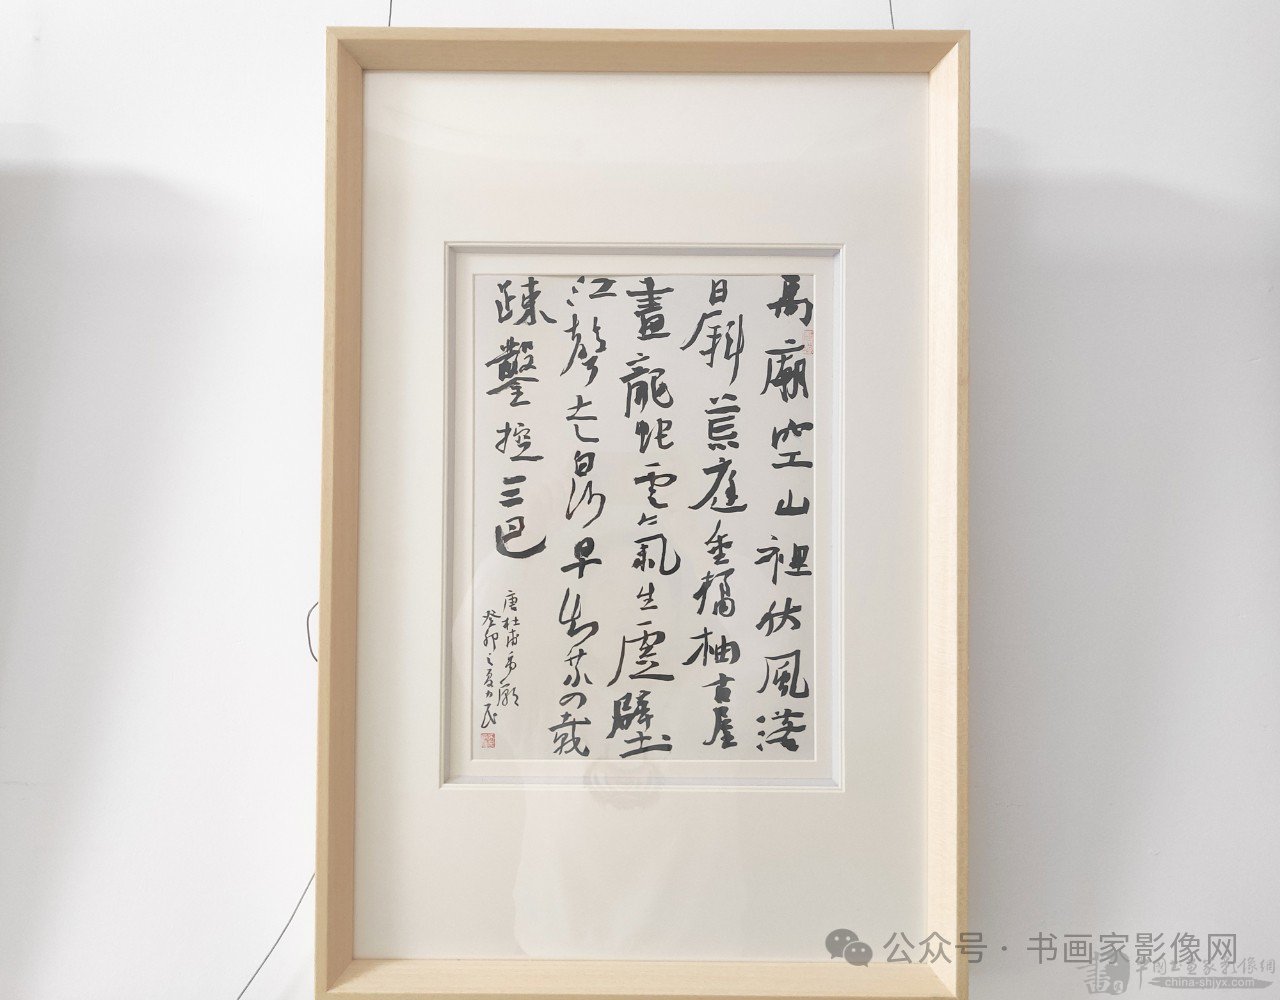 禹廟空山裡秋風落
日斜荒庭垂橘柚古屋
畫龍蛇雲氣生虛壁
江聲走白沙早知乘四載
疎鑿控三巴
唐杜甫禹廟
癸卯之夏力民
公众号·书画家影像网
中國書畫家影像網
china-shjyx.com